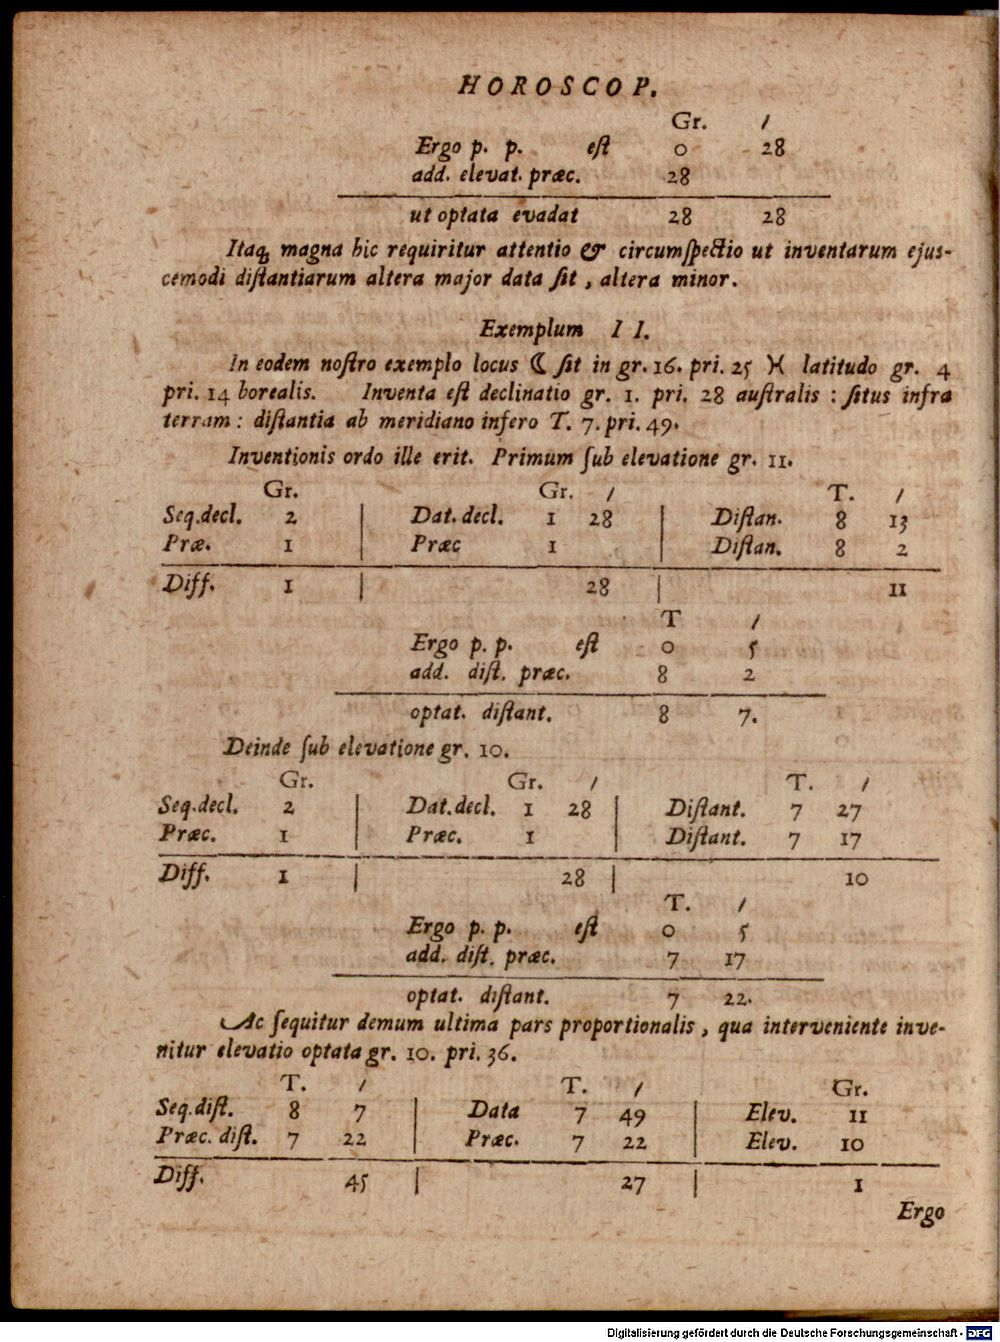 HOROSCOP.
Gr. /
Ergo p. p. est 0 28
add. elevat. præc. 28
ut optata evadat 28 28
Itaq; magna hic requiritur attentio & circumspectio ut inventarum ejus-
cemodi distantiarum altera major data sit, altera minor.
Exemplum II.
In eodem nostro exemplo locus ☾ sit in gr. 16. pri. 25 ♓ latitudo gr. 4
pri. 14 borealis. Inventa est declinatio gr. 1. pri. 28 australis : situs infra
terram : distantia ab meridiano infero T. 7. pri. 49.
Inventionis ordo ille erit. Primum sub elevatione gr. 11.
Gr. Gr. / T. /
Seq.decl. 2 | Dat. decl. 1 28 | Distan. 8 13
Præ. 1 | Præc 1 | Distan. 8 2
Diff. 1 | 28 | 11
T /
Ergo p. p. est 0 5
add. dist. præc. 8 2
optat. distant. 8 7.
Deinde sub elevatione gr. 10.
Gr. Gr. / T. /
Seq.decl. 2 | Dat.decl. 1 28 | Distant. 7 27
Præc. 1 | Præc. 1 | Distant. 7 17
Diff. 1 | 28 | 10
T. /
Ergo p. p. est 0 5
add. dist. præc. 7 17
optat. distant. 7 22.
Ac sequitur demum ultima pars proportionalis, qua interveniente inve-
nitur elevatio optata gr. 10. pri. 36.
T. / T. / Gr.
Seq.dist. 8 7 | Data 7 49 | Elev. 11
Præc. dist. 7 22 | Præc. 7 22 | Elev. 10
Diff. 45 | 27 | 1
Ergo
Digitalisierung gefördert durch die Deutsche Forschungsgemeinschaft - DFG